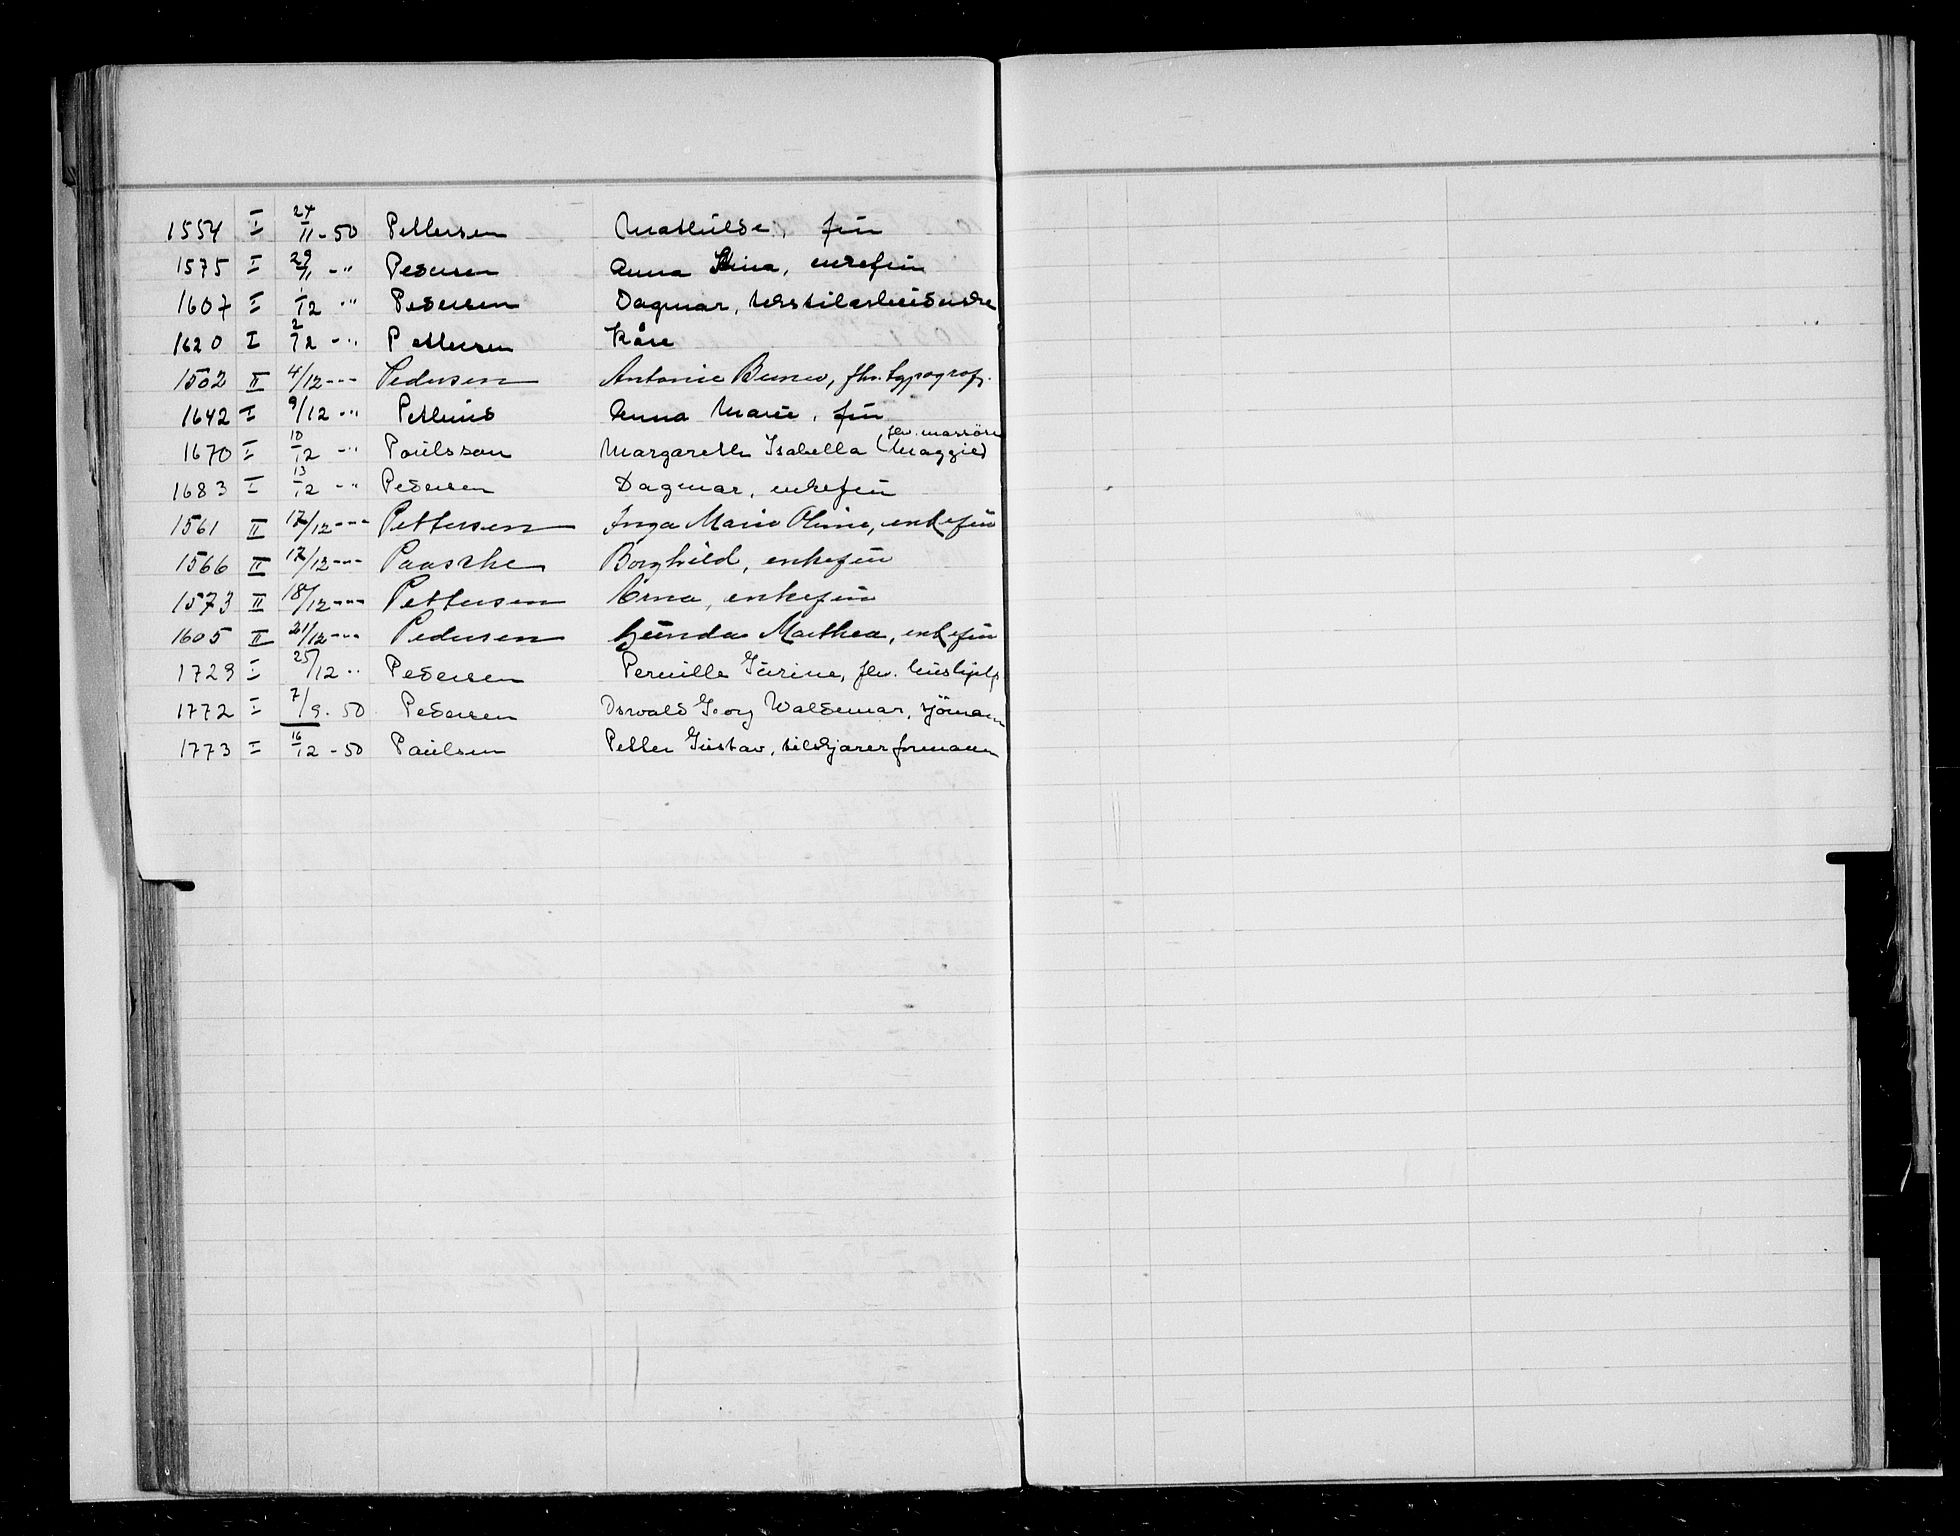 1554 I 24/11-50 Pettersen Mathilde, frü
1575 I 29/11 -" Pedersen Anna Stina, enkefrü
1607 I 1/12 -" Pedersen Dagmar, tekstilarbeiderske
1620 I 2/12 -" Pettersen Kåre
1502 II 4/12 --- Pedersen Antonie, fhv. typograf.
1642 I 9/12 -" Anna Marie, frü
1670 I 10/12 -" Poülsson Margarethe Isabella (Maggie) fhv. massöse
1683 I 13/12 -" Pedersen Dagmar, enkefrü
1561 II 17/12 --- Pettersen Inga Marie Oline, enkefrü
1566 II 17/12 --- Paasche Borghild, enkefrü
1573 II 18/12 --- Pettersen Erna, enkefrü
1605 II 21/12 --- Pedersen Günda Mathea, enkefrü
1729 I 25/12 -" Pedersen Pernille Gürine, fhv. hüshjelp
1772 I 7/9. 50 Pedersen Osvald Georg Waldemar, sjömann
1773 I 16/12 - 50 Paülsen Petter Güstav, tilskjærerformann